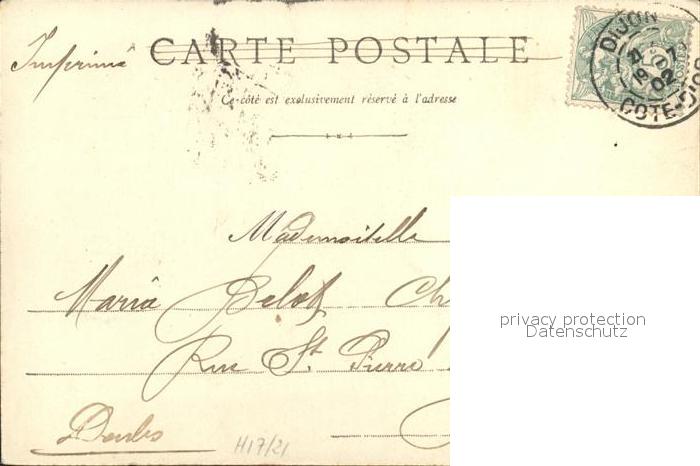 Imprimé
CARTE POSTALE
Ce côté est exclusivement réservé à l'adresse
DIJON
19 02
COTE-D'OR
Mademoiselle
Maria Belot
Rue St. Pierre
Doubs
H17/21
privacy protection
Datenschutz